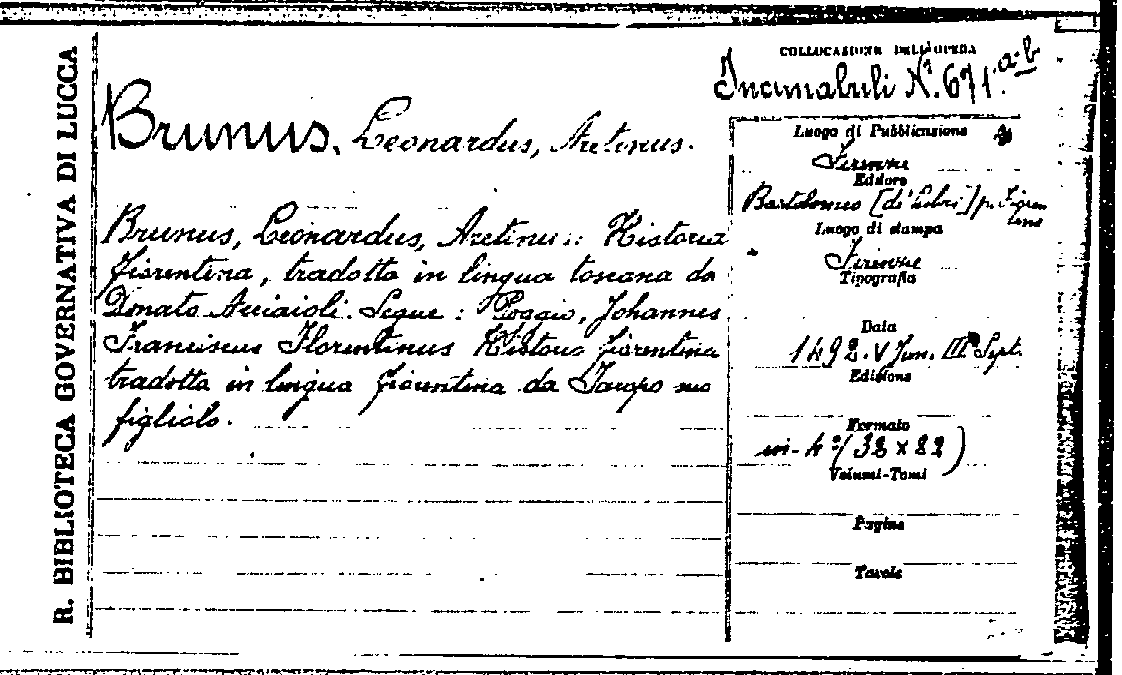 R. BIBLIOTECA GOVERNATIVA DI LUCCA
COLLOCAZIONE DELL'OPERA
Incunabuli N.º 671. a-b
Brunus, Leonardus, Aretinus.
Brunus, Leonardus, Aretinus: Historia
fiorentina, tradotta in lingua toscana da
Donato Acciaioli. Segue: Poggio, Johannes
Franciscus Florentinus Historia fiorentina
tradotta in lingua fiorentina da Jacopo suo
figliolo.
Luogo di Pubblicazione
Firenze
Editore
Bartolomeo [di Libri] p. Fioren
tino
Luogo di stampa
Firenze
Tipografia
Data
1492. V Jun. III Sept.
Edizione
Formato
in-4º (32 x 22)
Volumi-Tomi
Pagine
Tavole